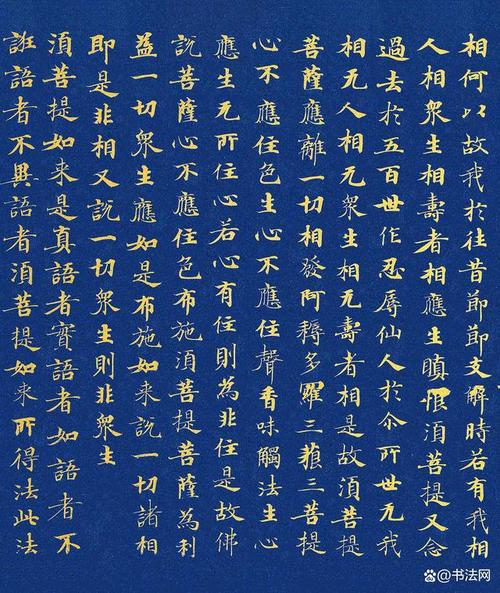 相何以故我於往昔節節支解時若有我相
人相衆生相壽者相應生瞋恨湏菩提又念
過去於五百世作忍辱仙人於尒所世无我
相无人相无衆生相无壽者相是故湏菩提
菩薩應離一切相發阿耨多羅三藐三菩提
心不應住色生心不應住聲香味觸法生心
應生无所住心若心有住則為非住是故佛
說菩薩心不應住色布施湏菩提菩薩為利
益一切衆生應如是布施如来說一切諸相
即是非相又說一切衆生則非衆生
湏菩提如来是真語者實語者如語者不
誑語者不異語者湏菩提如来所得法此法
@书法网